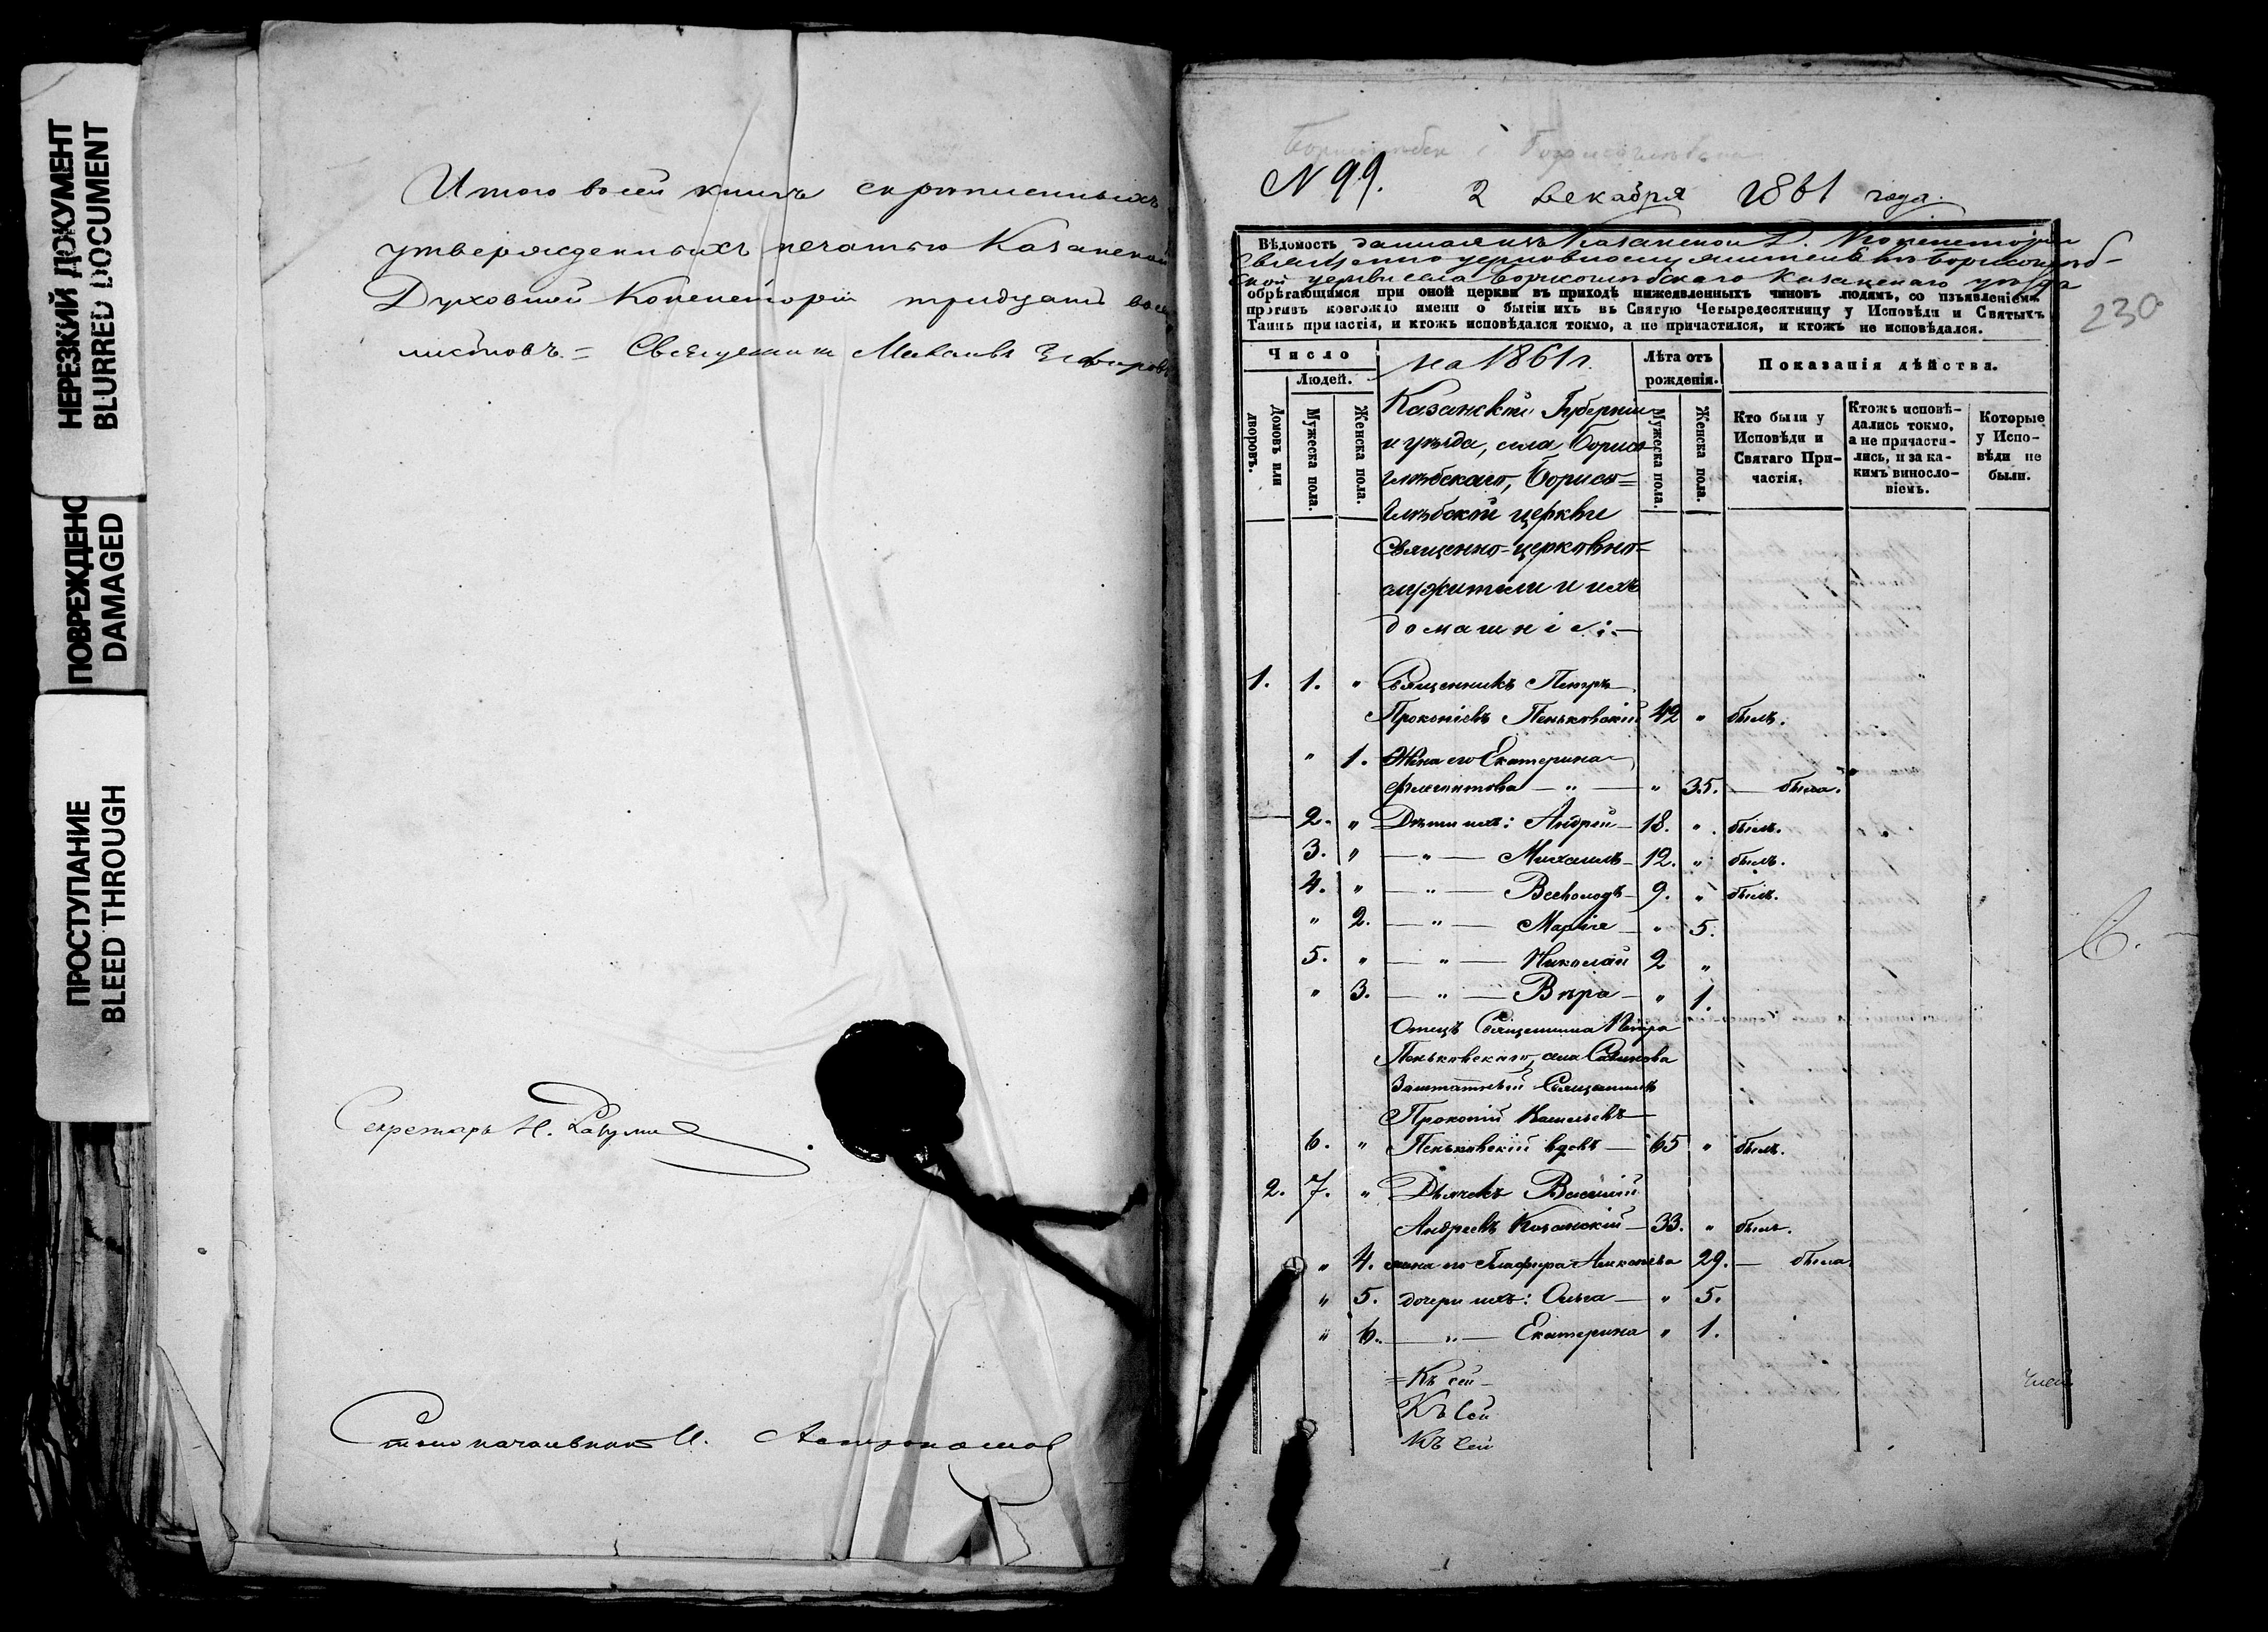 НЕРЕЗКИЙ ДОКУМЕНТ
BLURRED DOCUMENT
ПОВРЕЖДЕНО
DAMAGED
ПРОСТУПАНИЕ
BLEED THROUGH
Итого въ сей книгѣ скрѣпленныхъ
утвержденныхъ печатью Казанской
Духовной Консисторіи тридцать
листовъ = Священникъ Михаилъ
Секретарь Н.
Столоначальникъ И.
N 99. 2 Декабря 1861 года.
Вѣдомость данная изъ Казанской Д. Консисторіи
Священно церковнослужителямъ Борисоглѣб-
ской церкви села Борисоглѣбскаго Казанскаго уѣзда
обрѣтающимся при оной церкви въ приходѣ нижеявленныхъ чиновъ людямъ, со изъявленіемъ
противъ коегождо имени о бытіи ихъ въ Святую Четыредесятницу у Исповѣди и Святыхъ
Таинъ причастія, и ктожъ исповѣдался токмо, а не причастился, и ктожъ не исповѣдался.
230
Число
Людей.
Домовъ или дворовъ.
Мужеска пола.
Женска пола.
Лѣта отъ рожденія.
Мужеска пола.
Женска пола.
Показанія дѣйства.
Кто были у Исповѣди и Святаго Причастія,
Ктожъ исповѣ-
дались токмо,
а не причасти-
лись, и за ка-
кимъ винословіемъ.
Которые
у Испо-
вѣди не
были.
На 1861 г.
Казанской Губерніи
и уѣзда, села Борисо
глѣбскаго, Борисо=
глѣбской церкви
Священно-церковно=
служители и ихъ
домашніе:—
1. 1. " Священникъ Петръ
Прокопіевъ Пеньковскій 42 " былъ.
" 1. Жена его Екатерина
— " — " 35. — была.
2. " Дѣти ихъ: Андрей — 18. " былъ.
3. " — " — Михаилъ — 12. " былъ.
4. " — " — Всеволодъ — 9. " былъ.
" 2. — " — Марія — " 5.
5. " — " — Николай 2 "
" 3. — " — Вѣра — " 1.
Отецъ Священника Петра
Пеньковскаго, села
Заштатный Священникъ
Прокопій Васильевъ
6. " Пеньковскій вдовъ — 65 " былъ.
2. 7. " Дьячекъ Василій
Андреевъ Казанскій — 33. " былъ.
" 4. жена его Глафира 29. — была
" 5. дочери ихъ: Ольга — " 5.
" 6. — " — Екатерина " 1.
= Къ сей —
Къ сей
Къ сей